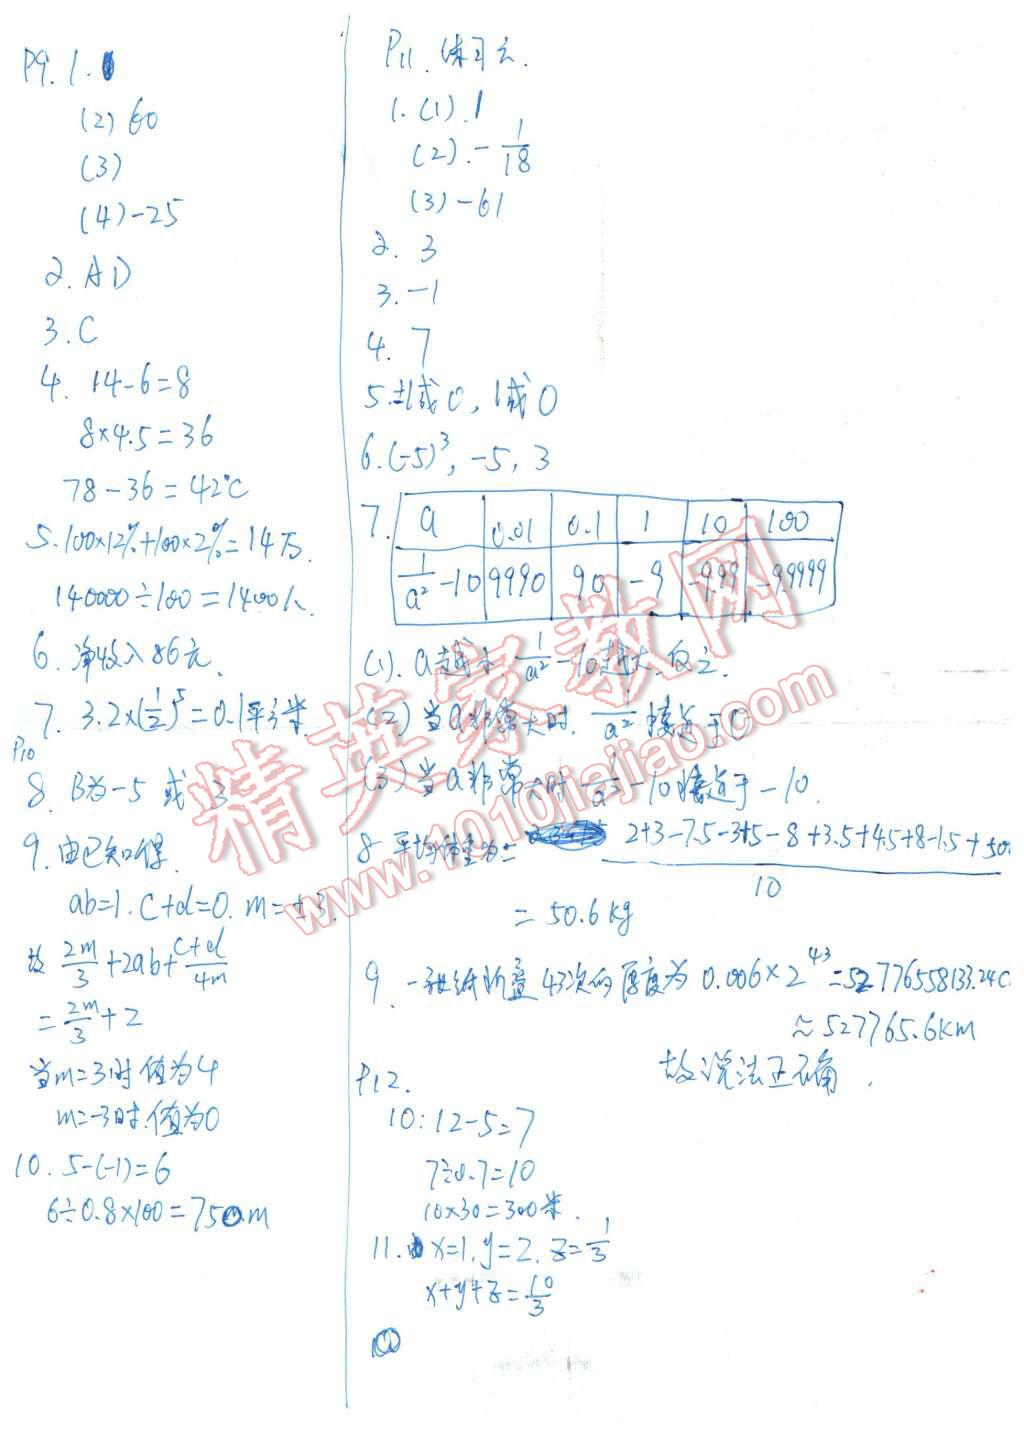 P9. 1.
(2) 60
(3)
(4) -25
2. AD
3. C
4. 14-6=8
8×4.5=36
78-36=42℃
5. 100×12%+100×2%=14万.
140000÷100=1400人.
6. 净收入86元.
7. 3.2×(1/2)^5=0.1平方米
P10
8. B为-5 或 3
9. 由已知得.
ab=1. c+d=0. m=±3.
故 2m/3+2ab+(c+d)/4m
=2m/3+2
当m=3时 值为4
m=-3时.值为0
10. 5-(-1)=6
6÷0.8×100=750m
P11. 练习六.
1. (1). 1
(2). -1/18
(3) -61
2. 3
3. -1
4. 7
5. ±1或0, 1或0
6. (-5)³, -5, 3
7. a 0.01 0.1 1 10 100
1/a²-10 9990 90 -9 -9.99 -9.9999
(1). a越小 1/a²-10越大. 反之.
(2) 当a非常大时. 1/a²接近于0
(3) 当a非常大时 1/a²-10接近于-10.
8 平均体重为= (2+3-7.5-3+5-8+3.5+4.5+8-1.5+50)/10
=50.6kg
9. 一张纸折叠43次的厚度为 0.006×2^43=52776558133.24C
≈527765.6km
故说法正确.
P12.
10: 12-5=7
7÷0.7=10
10×30=300米.
11. x=1, y=2. z=1/3
x+y+z=10/3
精英家教网
www.1010jiajiao.com